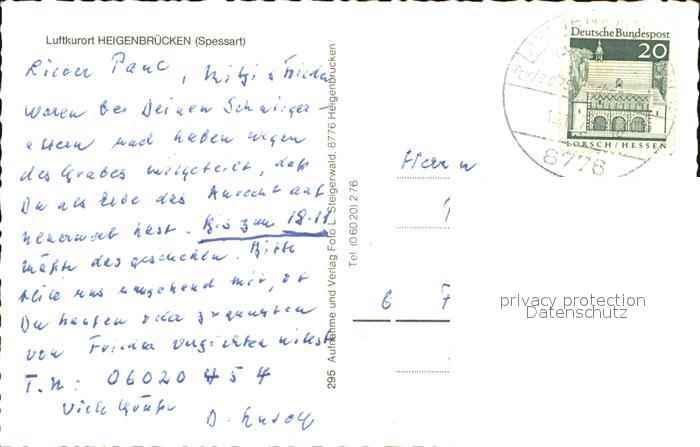 Luftkurort HEIGENBRÜCKEN (Spessart)
Lieber Paul,
waren bei Deinen Schwieger-
eltern und haben wegen
des Grabes mitgeteilt, daß
Du als Erbe das Anrecht auf
hast. Bis zum 18.11
müßte das geschehen. Bitte
teile uns umgehend mit, ob
Du kaufen oder zugunsten
von Frieda verzichten willst
T.N: 06020 454
Viele Grüße
295 Aufnahme und Verlag Foto L. Steigerwald, 8776 Heigenbrücken
Tel. (0 60 20) 2 76
Deutsche Bundespost
20
LORSCH/HESSEN
8776
Herrn
6 F
privacy protection
Datenschutz